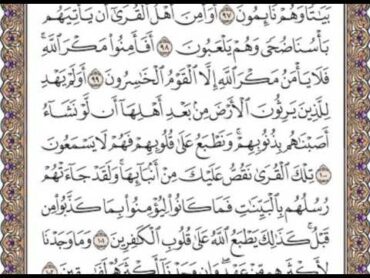 بَيَٰتًا وَهُمْ نَآئِمُونَ ٩٧ أَوَأَمِنَ أَهْلُ ٱلْقُرَىٰٓ أَن يَأْتِيَهُم
بَأْسُنَا ضُحًى وَهُمْ يَلْعَبُونَ ٩٨ أَفَأَمِنُوا۟ مَكْرَ ٱللَّهِ ۚ
فَلَا يَأْمَنُ مَكْرَ ٱللَّهِ إِلَّا ٱلْقَوْمُ ٱلْخَٰسِرُونَ ٩٩ أَوَلَمْ يَهْدِ
لِلَّذِينَ يَرِثُونَ ٱلْأَرْضَ مِنۢ بَعْدِ أَهْلِهَآ أَن لَّوْ نَشَآءُ
أَصَبْنَٰهُم بِذُنُوبِهِمْ ۚ وَنَطْبَعُ عَلَىٰ قُلُوبِهِمْ فَهُمْ لَا يَسْمَعُونَ
١٠٠ تِلْكَ ٱلْقُرَىٰ نَقُصُّ عَلَيْكَ مِنْ أَنۢبَآئِهَا ۚ وَلَقَدْ جَآءَتْهُمْ
رُسُلُهُم بِٱلْبَيِّنَٰتِ فَمَا كَانُوا۟ لِيُؤْمِنُوا۟ بِمَا كَذَّبُوا۟ مِن
قَبْلُ ۚ كَذَٰلِكَ يَطْبَعُ ٱللَّهُ عَلَىٰ قُلُوبِ ٱلْكَٰفِرِينَ ١٠١ وَمَا وَجَدْنَا